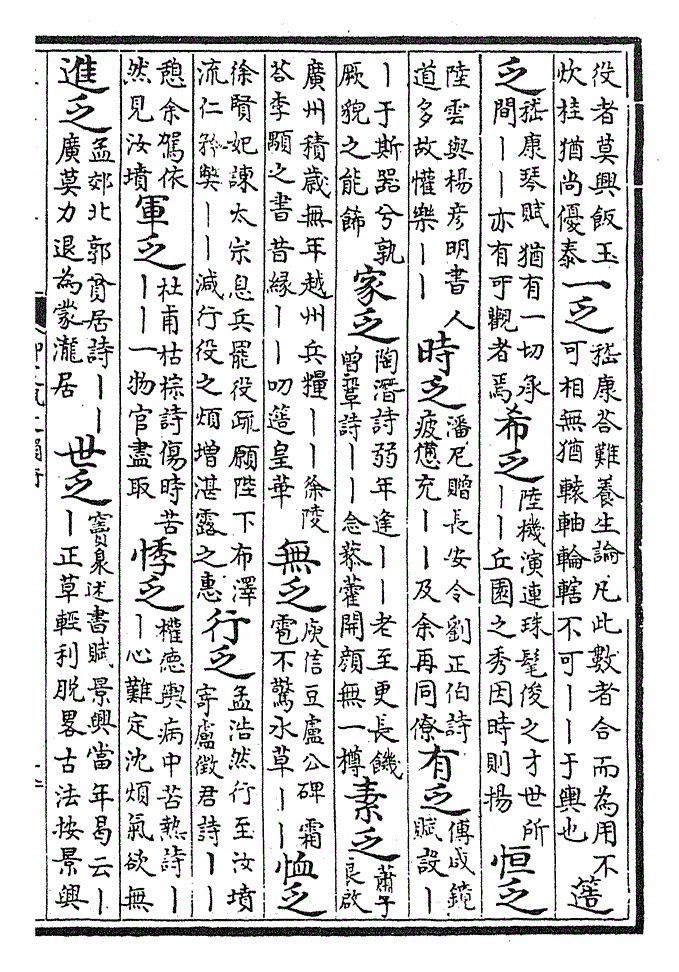 役者莫興飯玉炊桂猶尚優泰一乏嵇康荅難養生論凡此數者合而為用不可相無猶轅軸輪轄不可｜｜于輿也簉
乏嵇康琴賦猶有一切承間｜｜亦有可觀者焉希乏陸機演連珠髦俊之才世所｜｜丘園之秀因時則揚恒乏
陸雲與楊彦明書人道多故懽樂｜｜時乏潘尼贈長安令劉正伯詩疲憊充｜｜及余再同僚有乏傅咸鏡賦設｜
｜于斯器兮孰厥貌之能飾家乏陶潛詩弱年逢｜｜老至更長饑曾鞏詩｜｜念藜藿開顔無一樽素乏蕭子良啟
廣州積歲無年越州兵糧｜｜徐陵荅李顒之書昔縁｜｜叨簉皇華無乏庾信豆盧公碑霜雹不驚水草｜｜恤乏
徐賢妃諌太宗息兵罷役疏願陛下布澤流仁矜弊｜｜減行役之煩增湛露之惠行乏孟浩然行至汝墳寄盧徵君詩｜｜
憩余駕依然見汝墳軍乏杜甫枯棕詩傷時苦｜｜一物官盡取悸乏權德輿病中苦熱詩｜｜心難定沈煩氣欲無
進乏孟郊北郭貧居詩｜｜廣莫力退為蒙瀧居世乏竇臮述書賦景興當年曷云｜｜正草輕利脱畧古法按景興